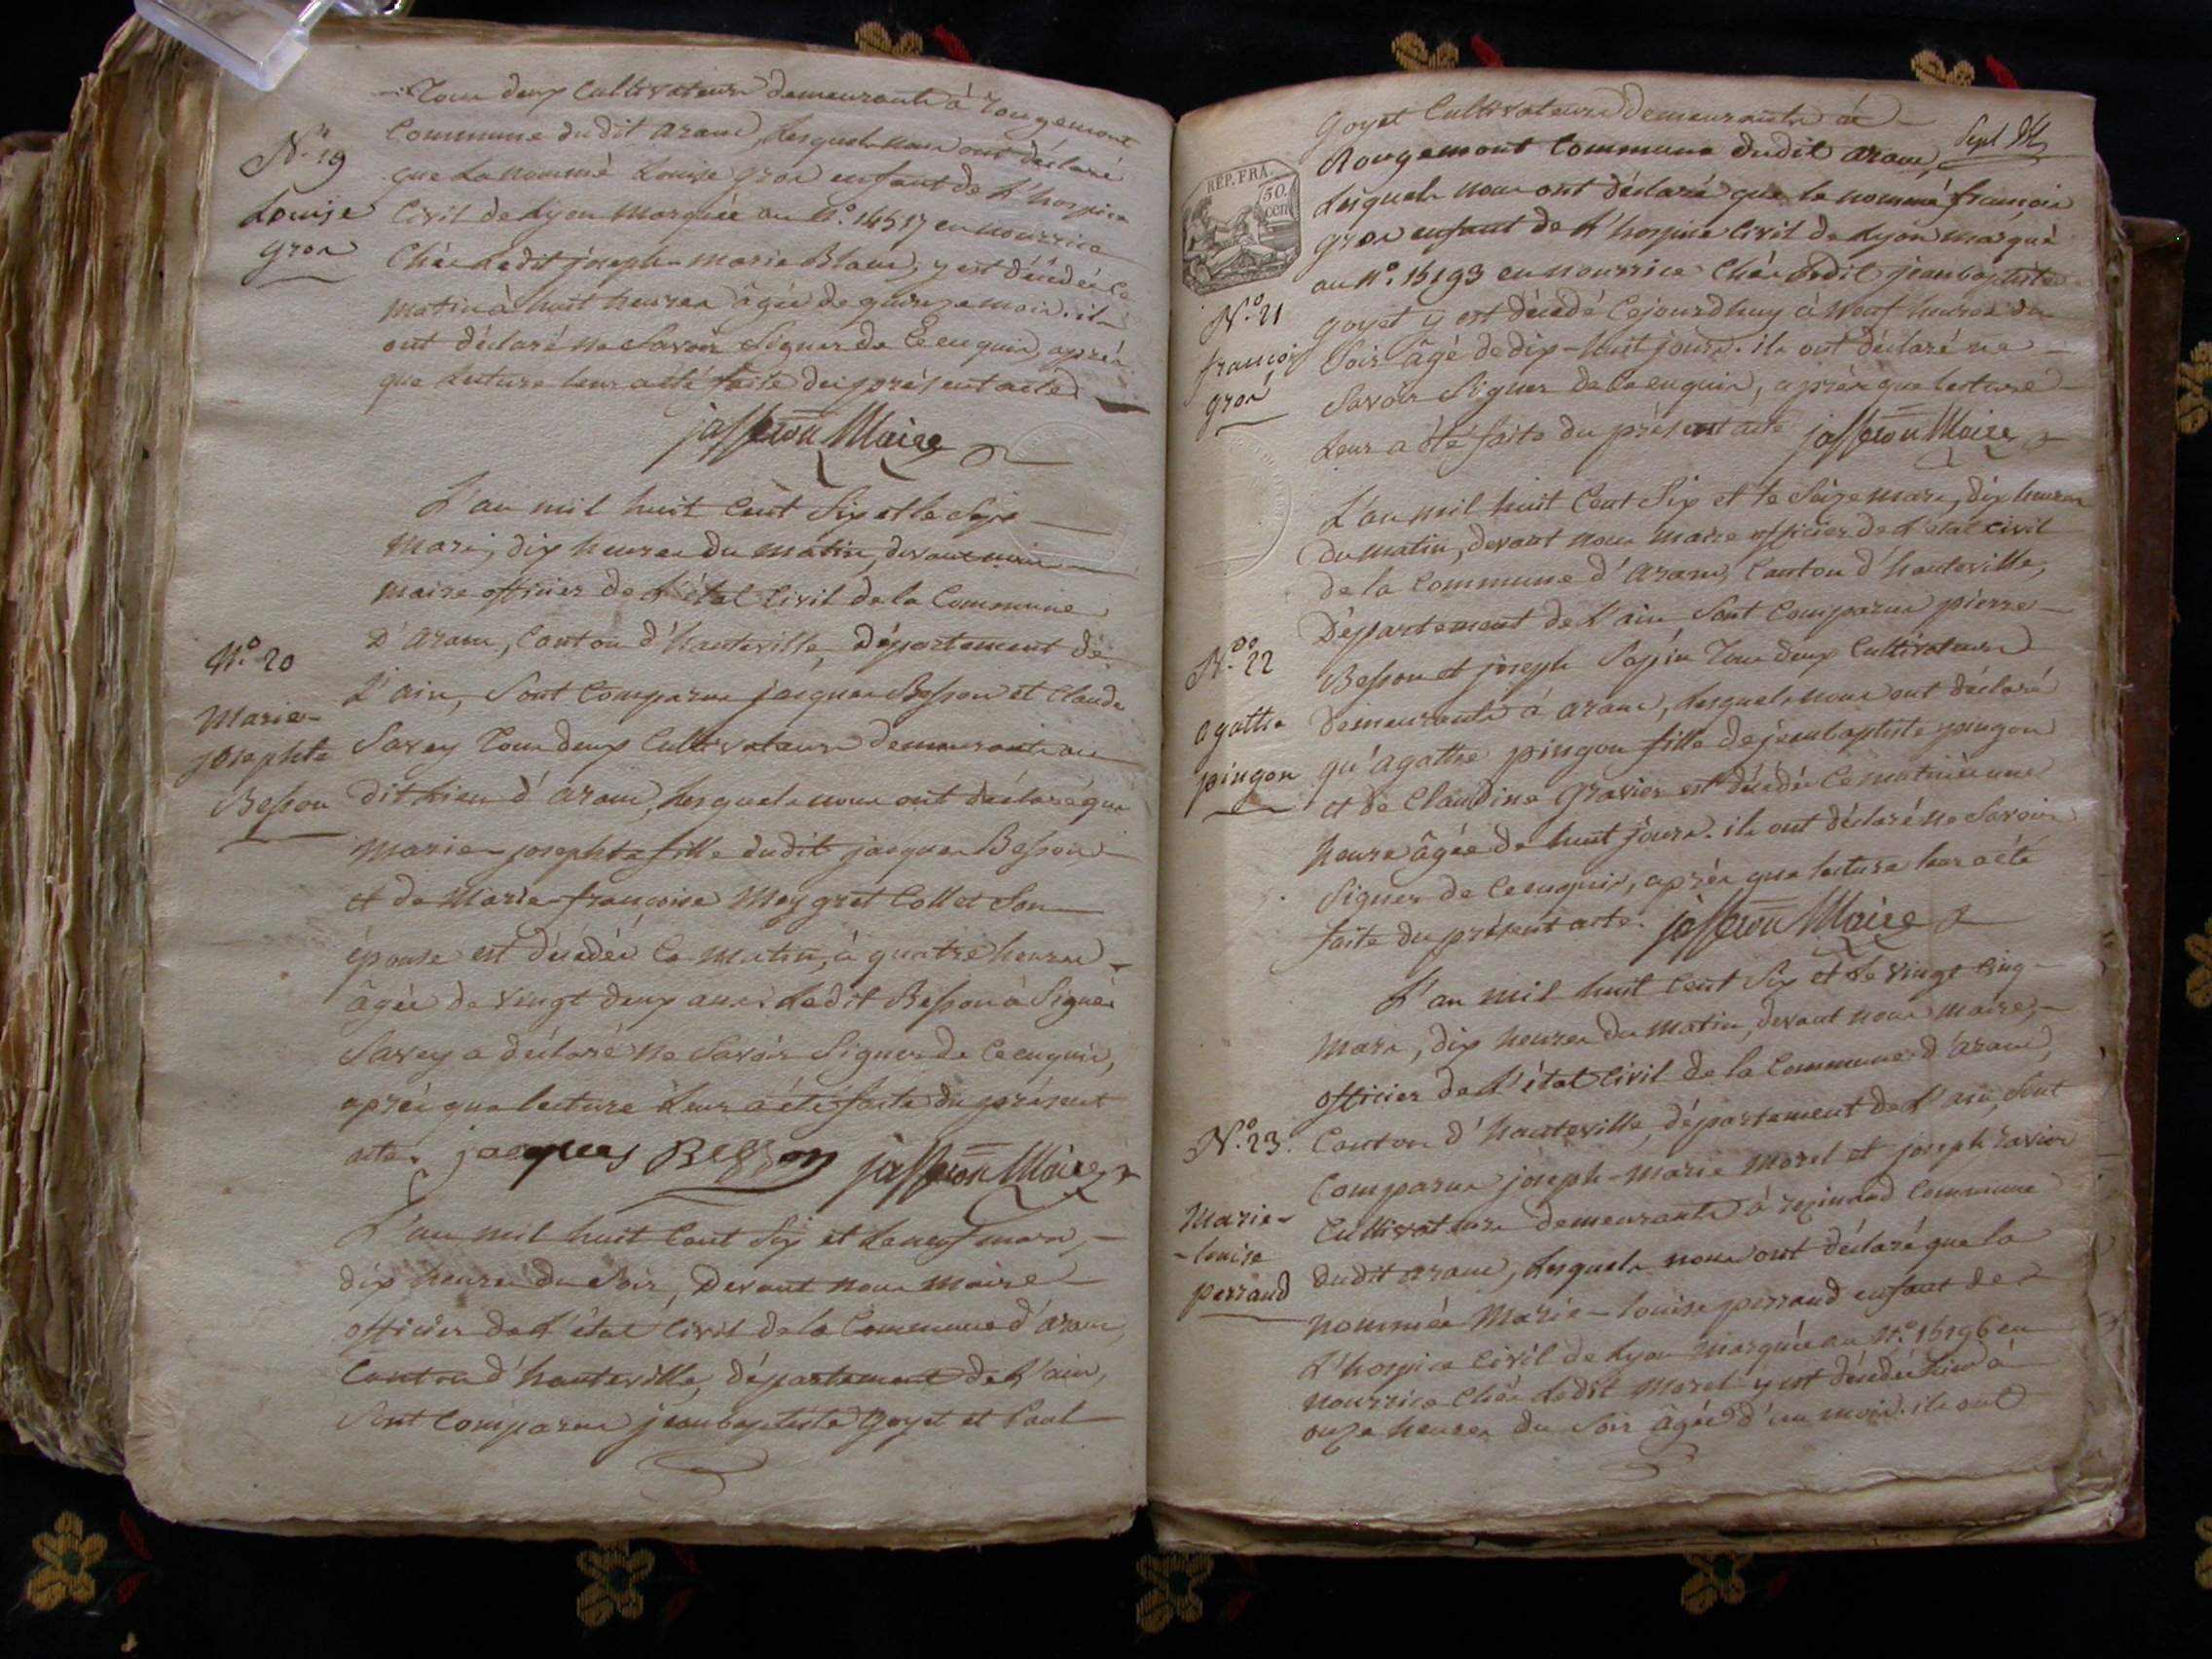 Tous deux Cultivateurs demeurants à rougemont
Commune dudit aranc, lesquels nous ont déclaré
N.º 19
que la nommé Louise gros enfant de L'hospice
Louise
gros
Civil de Lyon marquée au N.º 14517 en nourrice
Chés Ledit joseph-marie Blanc, y est décédée Ce
matin à huit heures âgée de quinze mois. ils
ont déclaré ne Savoir Signer de Ce enquis, après
que lecture leur a été faite du présent acte
jasseron Maire
L'an mil huit Cent Six et le Sept
mars, dix heures du matin, devant nous
maire officier de L'état Civil de la Commune
D'aranc, Canton d'hauteville, Département de
N.º 20
L'ain, Sont Comparus jacques Besson et Claude
Marie-
josephte
Besson
Savey Tous deux Cultivateurs demeurants au
dit Lieu d'aranc, lesquels nous ont déclaré que
Marie-josephte fille dudit jacques Besson
et de Marie-françoise Meygret Collet Son
épouse est décédée Ce matin, à quatre heures
âgée de vingt deux ans. Ledit Besson à Signé
Savey a déclaré ne Savoir Signer de Ce enquis,
après que lecture Leur à été faite du présent
acte. jacques Besson jasseron Maire
L'an mil huit Cent Six et Le neuf mars,
dix heures du Soir, Devant nous maire
officier de L'état Civil de la Commune d'aranc,
Canton d'hauteville, département de L'ain,
Sont Comparus jean baptiste Goyet et Paul
Goyet Cultivateurs Demeurants à
Sept
Rougemont Commune dudit aranc,
REP. FRA.
50
cen
Lesquels nous ont déclaré que le nommé françois
gros enfant de L'hospice Civil de Lyon marqué
au N.º 15193 en nourrice Chés Ledit jean baptiste
N.º 21
françois
gros
goyet y est décédé Cejourdhuy à Neuf heures du
Soir âgé de dix-huit jours. ils ont déclaré ne
Savoir Signer de Ce enquis, après que lecture
Leur a été faite du présent acte jasseron Maire
L'an mil huit Cent Six et le Seize mars, dix heures
du matin, devant nous maire officier de L'état civil
de la Commune d'aranc, Canton d'hauteville,
Département de L'ain Sont Comparus pierre
N.º 22
Besson et joseph Sapin Tous deux Cultivateurs
agathe
pingon
Demeurants à aranc, lesquels nous ont déclaré
qu'agathe pingon fille de jean baptiste pingon
et de Claudine Gravier est décédée Ce matin à une
heure âgée de huit jours. ils ont déclaré ne Savoir
Signer de Ce enquis, après que lecture leur a été
faite du présent acte. jasseron Maire
L'an mil huit Cent Six et Le vingt Cinq
mars, dix heures du matin, devant nous maire,
officier de L'état Civil de la Commune d'aranc,
N.º 23.
Canton d'hauteville, département de L'ain, Sont
Comparus joseph-marie Morel et joseph ravier
Marie-
-louise
perraud
Cultivateurs demeurants à resinand Commune
dudit aranc, lesquels nous ont déclaré que la
nommée Marie-louise perraud enfant de
L'hospice Civil de Lyon marquée au N.º 15196 en
nourrice Chés Ledit Morel y est décédée hier à
onze heures du Soir âgée d'un mois. ils ont